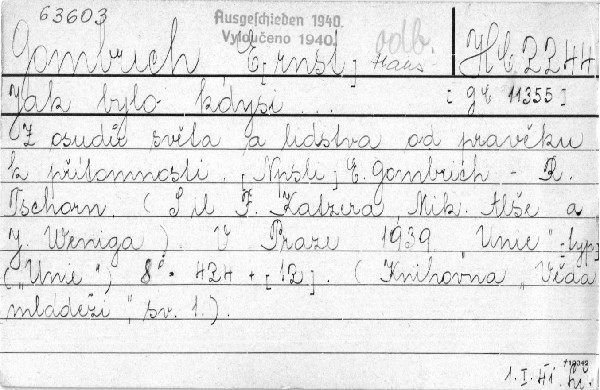 63603
Ausgeschieden 1940.
Vyloučeno 1940.
odb.
Gombrich, E[rnst] Hans HC 2244
Jak bylo kdysi ... [gE 11355]
Z osudů světa a lidstva od pravěku
k přítomnosti. [Npsli] E. Gombrich - R.
Tschorn. (S il F. Katzera Mik. Alše a
J. Weniga). V Praze 1939 Unie [typ]
("Unie") 8° 424 + [12]. (Knihovna "Věda
mládeži", sv. 1.).
1.I.41.